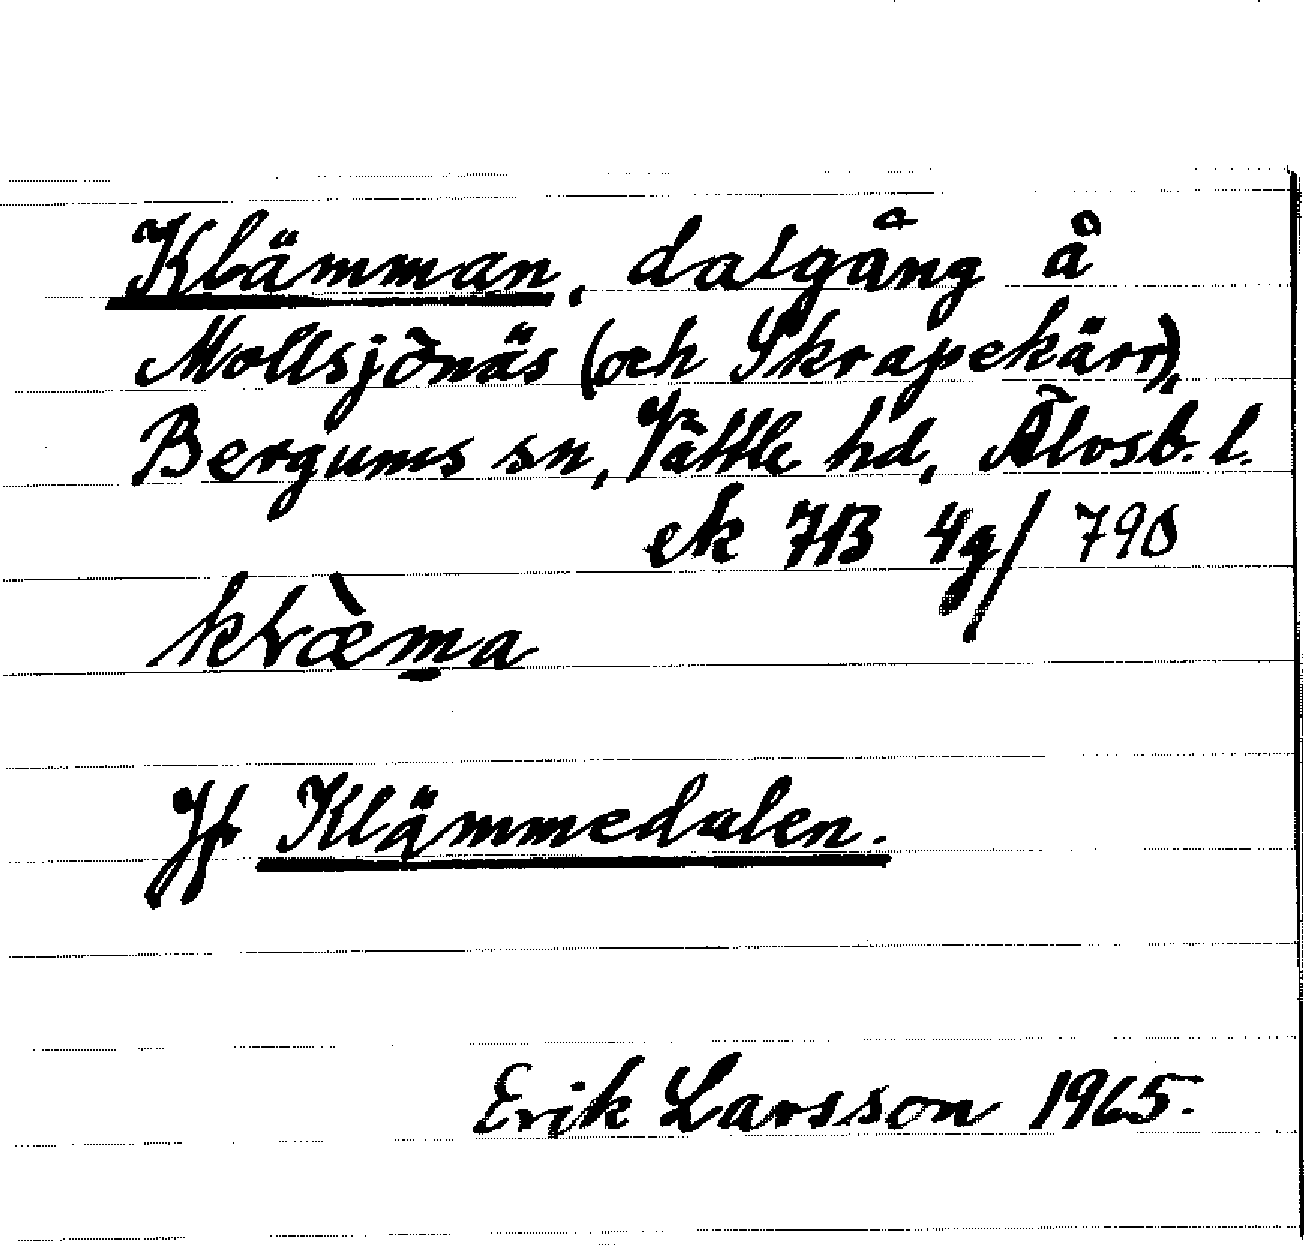 Klämman, dalgång å
Mollsjönäs (och Skrapekärr),
Bergums sn, Vättle hd, Älvsb. l.
ek 7B 4g/790
klæ̀m̲a
Jfr Klämmedalen.
Erik Larsson 1965.